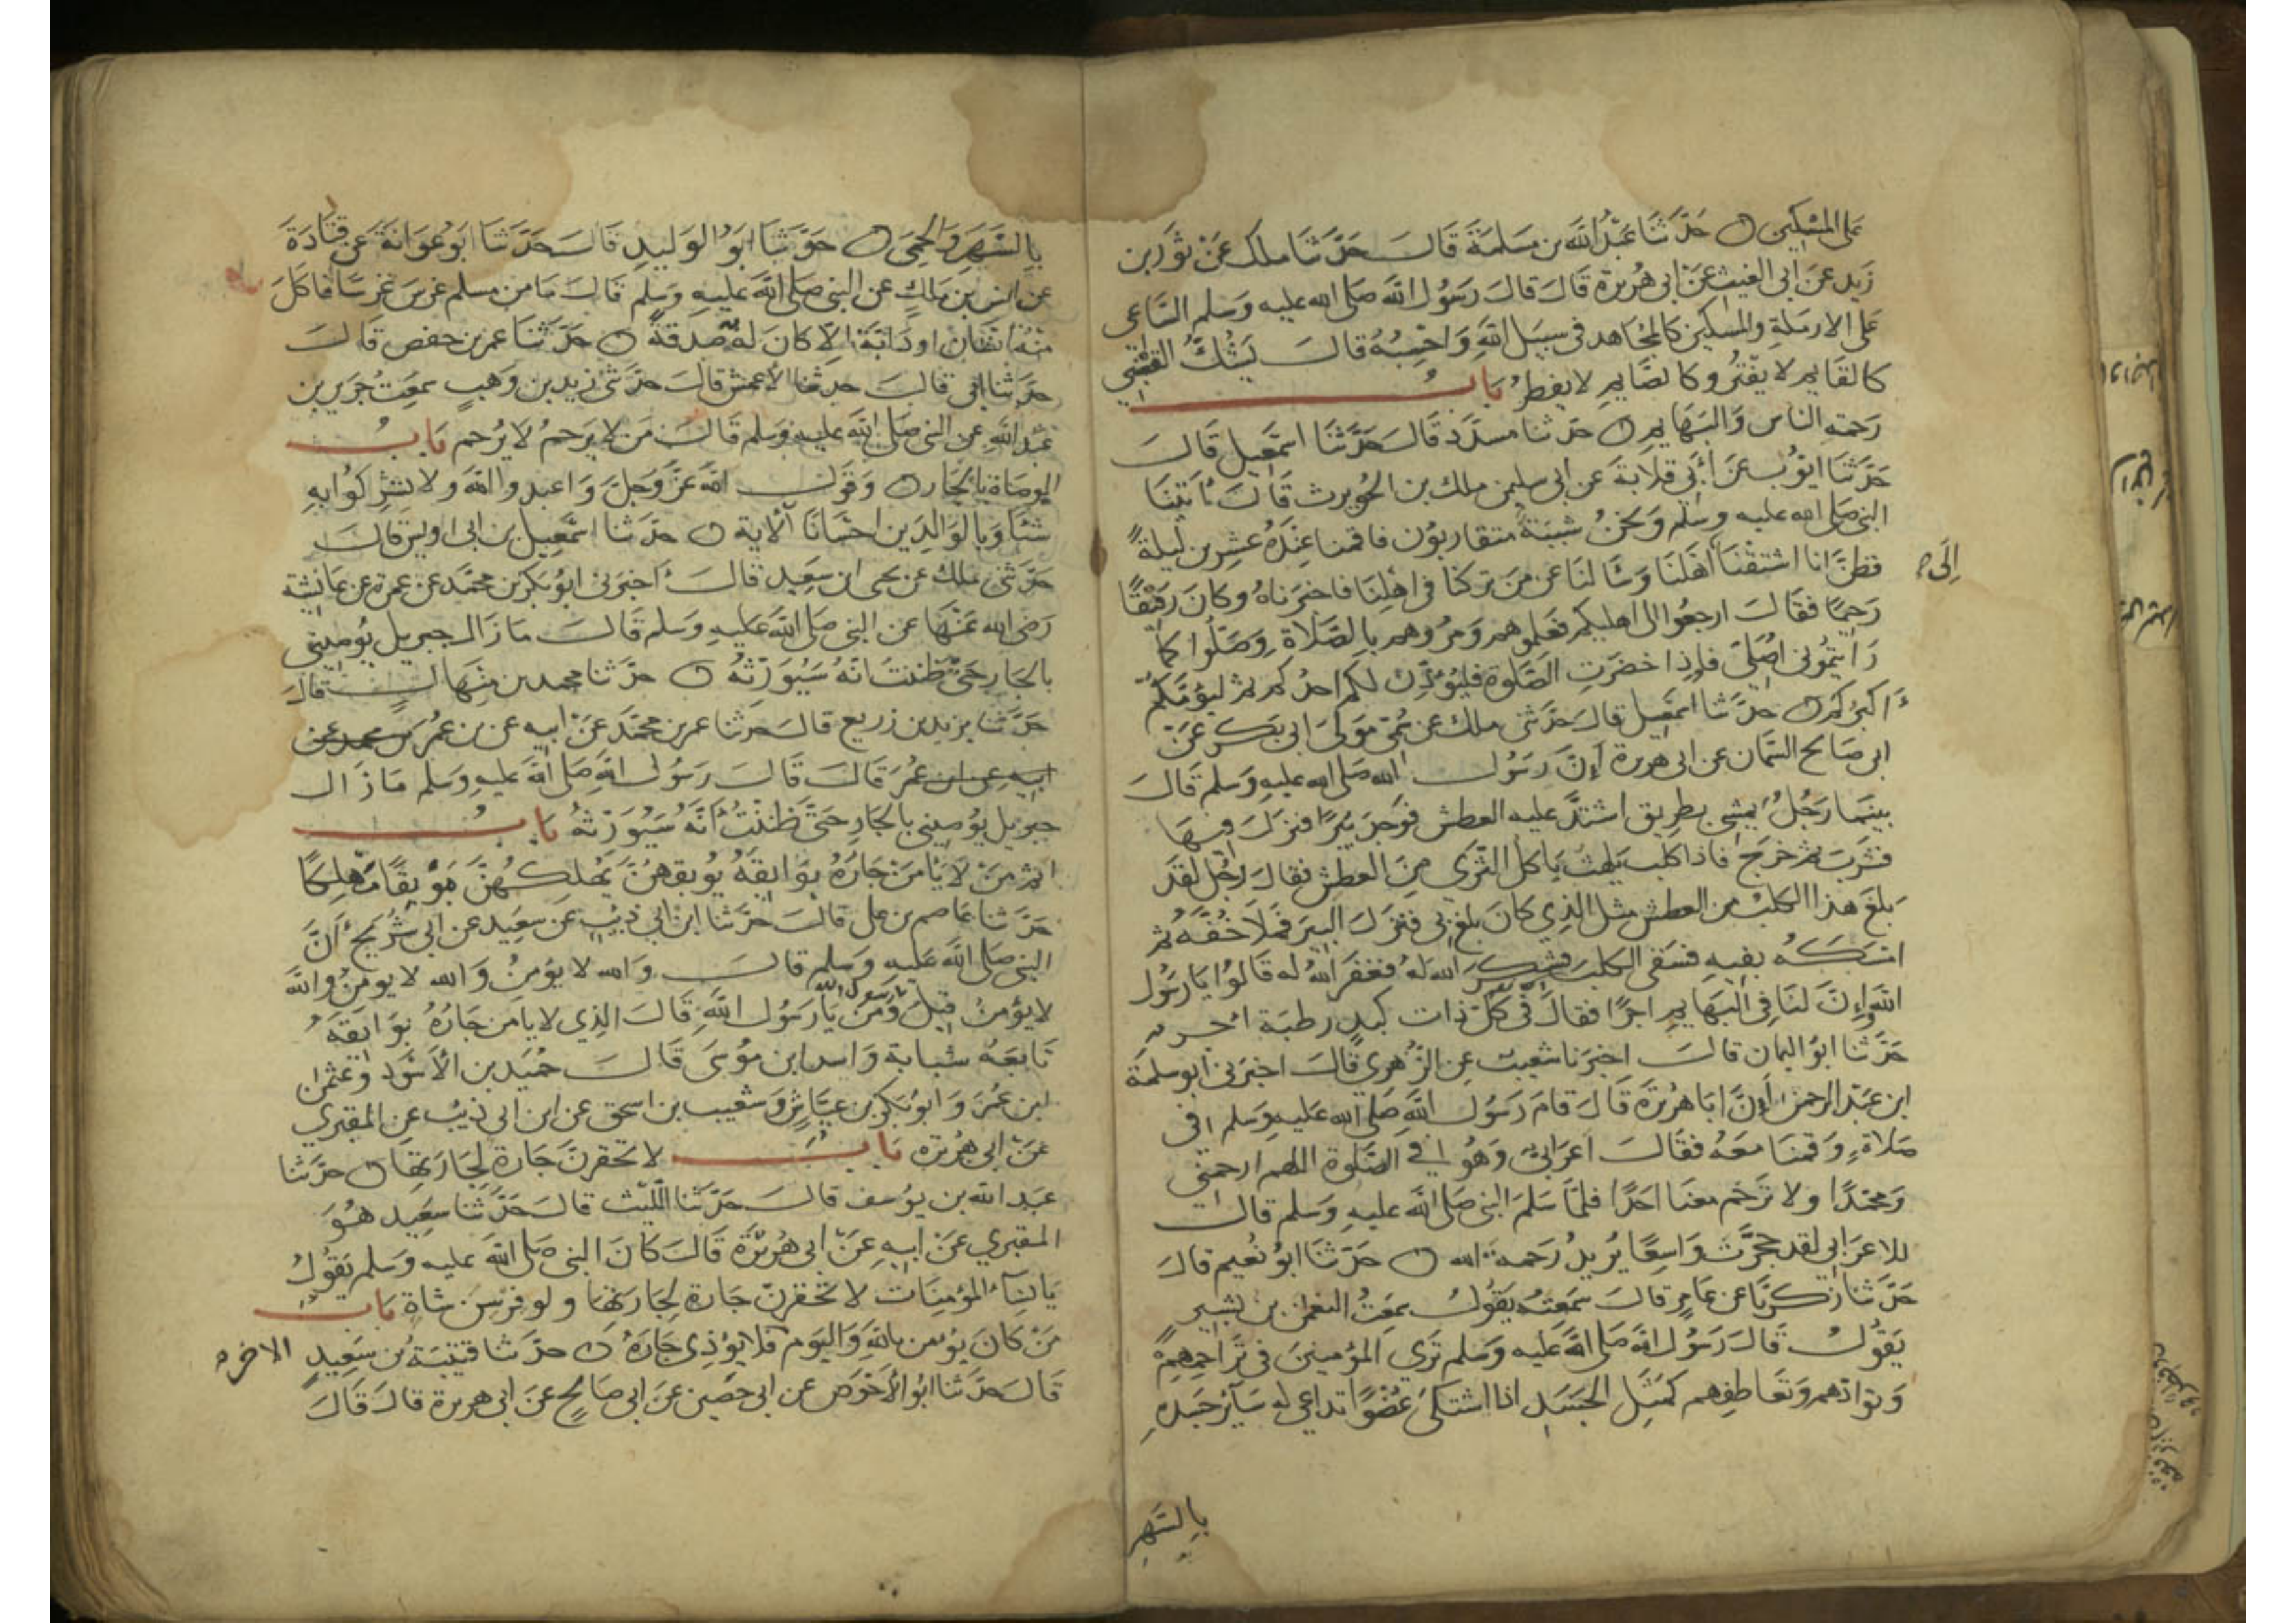 على المسكين حَدَّثَنَا عَبْدُ الله بن مَسلمَةَ قَالَ حَدَّثَنَا ملك عَنْ ثَوْر بن
زَيد عن أبي الغيث عَنْ ابى هُرَيرة قَالَ قالَ رَسُول الله صَلى الله عليه وَسَلم السَّاعي
على الارمَلةِ والمسكين كالمجاهد فى سبيل اللهِ وَاحْسِبُهُ قالَ يَشُكُّ القعنبي
كالقايم لا يَفْتُرُ وكالصَّايم لا يفطرُ بابُ
رَحمةِ الناس وَالبَهَايم حدثنا مسدّد قَالَ حَدَّثَنَا اسمٰعيل قَالَ
حَدَّثنَا ايّوُب عَنْ أبي قلابَةَ عن ابى سليمن ملك بن الحُوَيرث قَالَ أتَيْنَا
النبي صَلى الله عليه وسَلم وَنحْنُ شَبَبَةٌ متقاربُون فاقمنا عِنْدَهُ عشرِين ليلةً
فظنَّ انا اشتقْنَا أهْلَنَا وَسَالنَا عن مَن تركنا فى اهْلِنَا فاخبَرنَاهُ وكانَ رَفيْقًا
إِلَى
رَحِيمًا فقَالَ ارجعُوا الى اهليكم فعَلموهمْ وَمُرُوهم بالصَّلاة وَصَلُّوا كما
رَأيتمُونى اصَلى فإِذا حَضرَتِ الصَّلوة فليُؤذِّن لكم احدُكم ثم ليَؤمَّكمْ
أكبرُكم حدّثنا اسمٰعيل قالَ حَدّثني ملك عن سُمَيّ مَولَى ابى بَكر عَنْ
ابى صَالح السَّمان عن ابى هريرة أنَّ رَسُول الله صَلى الله عليه وَسلم قَالَ
بينمَا رَجُلٌ يمْشى بطرِيق اشتدَّ عليه العطش فوَجدَ بيرًا فنزلَ فيهَا
فشرِبَ ثم خرَجَ فاذا كلب يَلهثُ يَاكلُ الثّرَى مِنَ العطش فقالَ رَجُل لقدْ
بلغَ هذا الكلبَ من العطش مثل الذِي كَانَ بلغ بي فنزلَ البيرَ فملأ خُفَّهُ ثم
امسَكهُ بفيهِ فسَقى الكلبَ فشكرَ الله لهُ فغفرَ الله له قَالُوا يَا رَسُول
الله وَإنَّ لنَا في البَهَايمِ اجرًا فقالَ فى كلّ ذات كبدٍ رطبَة اجر
حَدَّثنا ابوُ اليمان قالَ اخبرَنا شعيبٌ عن الزُّهرى قالَ اخبَرنى ابوسلمَة
ابن عَبد الرحمٰن انَّ ابَا هُريْرَةَ قَالَ قامَ رَسُول اللهِ صَلى الله عَليهِ وَسَلم في
صَلاةٍ وَقمنَا معَهُ فقالَ اعرَابيٌّ وَهُوَ في الصَّلوة اللهم ارحمني
وَمحمّدًا ولا تَرْحَم معنا احَدًا فلمَّا سَلمَ النبي صَلى الله عليهِ وَسَلم قالَ
للاعرَابي لقد حجَّرْتَ وَاسِعًا يُريدُ رَحمة الله حَدّثنَا ابوُ نُعيم قالَ
حَدَّثنا زكريَّا عَن عَامرٍ قالَ سَمعتهُ يَقولُ سمعتُ النعمٰن بن بَشير
يَقُولُ قَالَ رَسُول الله صَلى الله عليه وَسلم تَرَى المؤمنينَ فى تَرَاحُمِهمْ
وَتوَادّهم وَتعَاطفِهم كمَثل الجَسَدِ اذا اشتكى عُضوًا تداعى له سَآئرُ جَسَدِهِ
بِالسَّهرِ
بِالسَّهَرِ وَالحمّى حَدَّثنَا ابوُ الوَليدِ قَالَ حَدَّثنا ابوُ عَوَانَةَ عَن قتادَةَ
عن انَس بن مَالكٍ عن النبي صَلى الله عليهِ وَسَلم قَالَ مَا من مسلم غرسَ غرسًا فاكلَ
منهُ انسَانٌ اودَابَّةٌ الّا كانَ لهُ صَدقةٌ حدّثنا عمر بن حفص قالَ
حدّثنا ابى قالَ حدثنا الأعمش قالَ حدّثني زيد بن وَهبٍ سمعتُ جَرير بن
عَبد اللهِ عن النبي صَلى الله عليهِ وَسلم قالَ مَن لا يَرحَمُ لا يُرحم بَابُ
الوصَاة بالجَار وَقولِ الله عَزَّ وَجَلَّ وَاعبدوا الله وَلا تشرِكوا بهِ
شئًا وَبالوَالدَين احْسَانًا ألاية حَدّثنا اسمٰعيل بن ابى اويس قالَ
حدّثنى ملك عن يحيى ابن سَعِيد قالَ اخبرَنى ابوُ بكر بن محمّد عن عمرة عن عَائشة
رَضى الله عَنهَا عن النبى صَلى الله عَليهِ وَسَلم قَالَ مَا زَالَ جبريل يُوصِينى
بالجَارِ حَتّى ظننتُ انَّهُ سَيُوَرِّثهُ حدّثنا محمد بن منهَالٍ قالَ
حَدَّثنا يزيد بن زريع قالَ حدثنا عمر بن محمّد عَنْ ابيه عن بن عُمرَ بن محمد عن
ابيهِ عن ابن عُمَرَ قالَ قَالَ رَسُول اللهِ صَلى الله عليهِ وَسَلم مَا زَال
جبريل يُوصِيني بالجَارِ حَتى ظننتُ أنَّهُ سَيُوَرّثهُ بَابُ
اثم مَنْ لا يَأمَنْ جَارُهُ بَوَايقَهُ يُوبقهنَّ يُهلكهُنَّ مَوْبقًا مَهْلِكًا
حَدّثنا عَاصم بن علي قالَ حَدّثنا ابن أبي ذيب عن سعيد عن ابى شُرَيح أنَّ
النبي صَلى الله عليه وَسَلم قالَ وَالله لا يؤمنُ وَالله لا يومنُ والله
لا يؤمنُ قيلَ وَمَنْ يَا رَسُول اللهِ قالَ الذِي لا يَامن جَارُهُ بوَايقهُ
تَابَعَهُ شبابة وَاسد ابن مُوسَى وقَالَ حُمَيْد بن الأسْوَد وَعثمٰن
ابن عُمَرَ وَابوُ بَكر بن عيَّاشٍ وَشعيب بن اسحق عن ابن ابى ذيب عن المقبري
عَنْ ابى هُريرَة بَابُ لا تحقرنَّ جَارة لجَارَتهَا حدّثنا
عَبد الله بن يوُسف قالَ حَدّثنا اللّيث قالَ حَدّثنا سَعِيد هُوَ
المقبري عَنْ ابيهِ عن ابى هُريْرَةَ قَالَ كانَ النبى صَلى الله عليه وَسَلم يَقُولُ
يَا نسَآء المؤمنَات لا تحقرنّ جَارة لجَارَتهَا ولو فرْسِنَ شاةٍ بَابُ
مَنْ كانَ يُؤمن بالله وَاليَوم فلا يؤذِى جَارَهُ حدّثنا قتيبَة بن سَعيدٍ
الاخر
قَالَ حدّثنا ابوُ الأحْوَص عن ابى حَصين عَنْ ابى صَالحٍ عَنْ ابى هريرة قالَ قَالَ